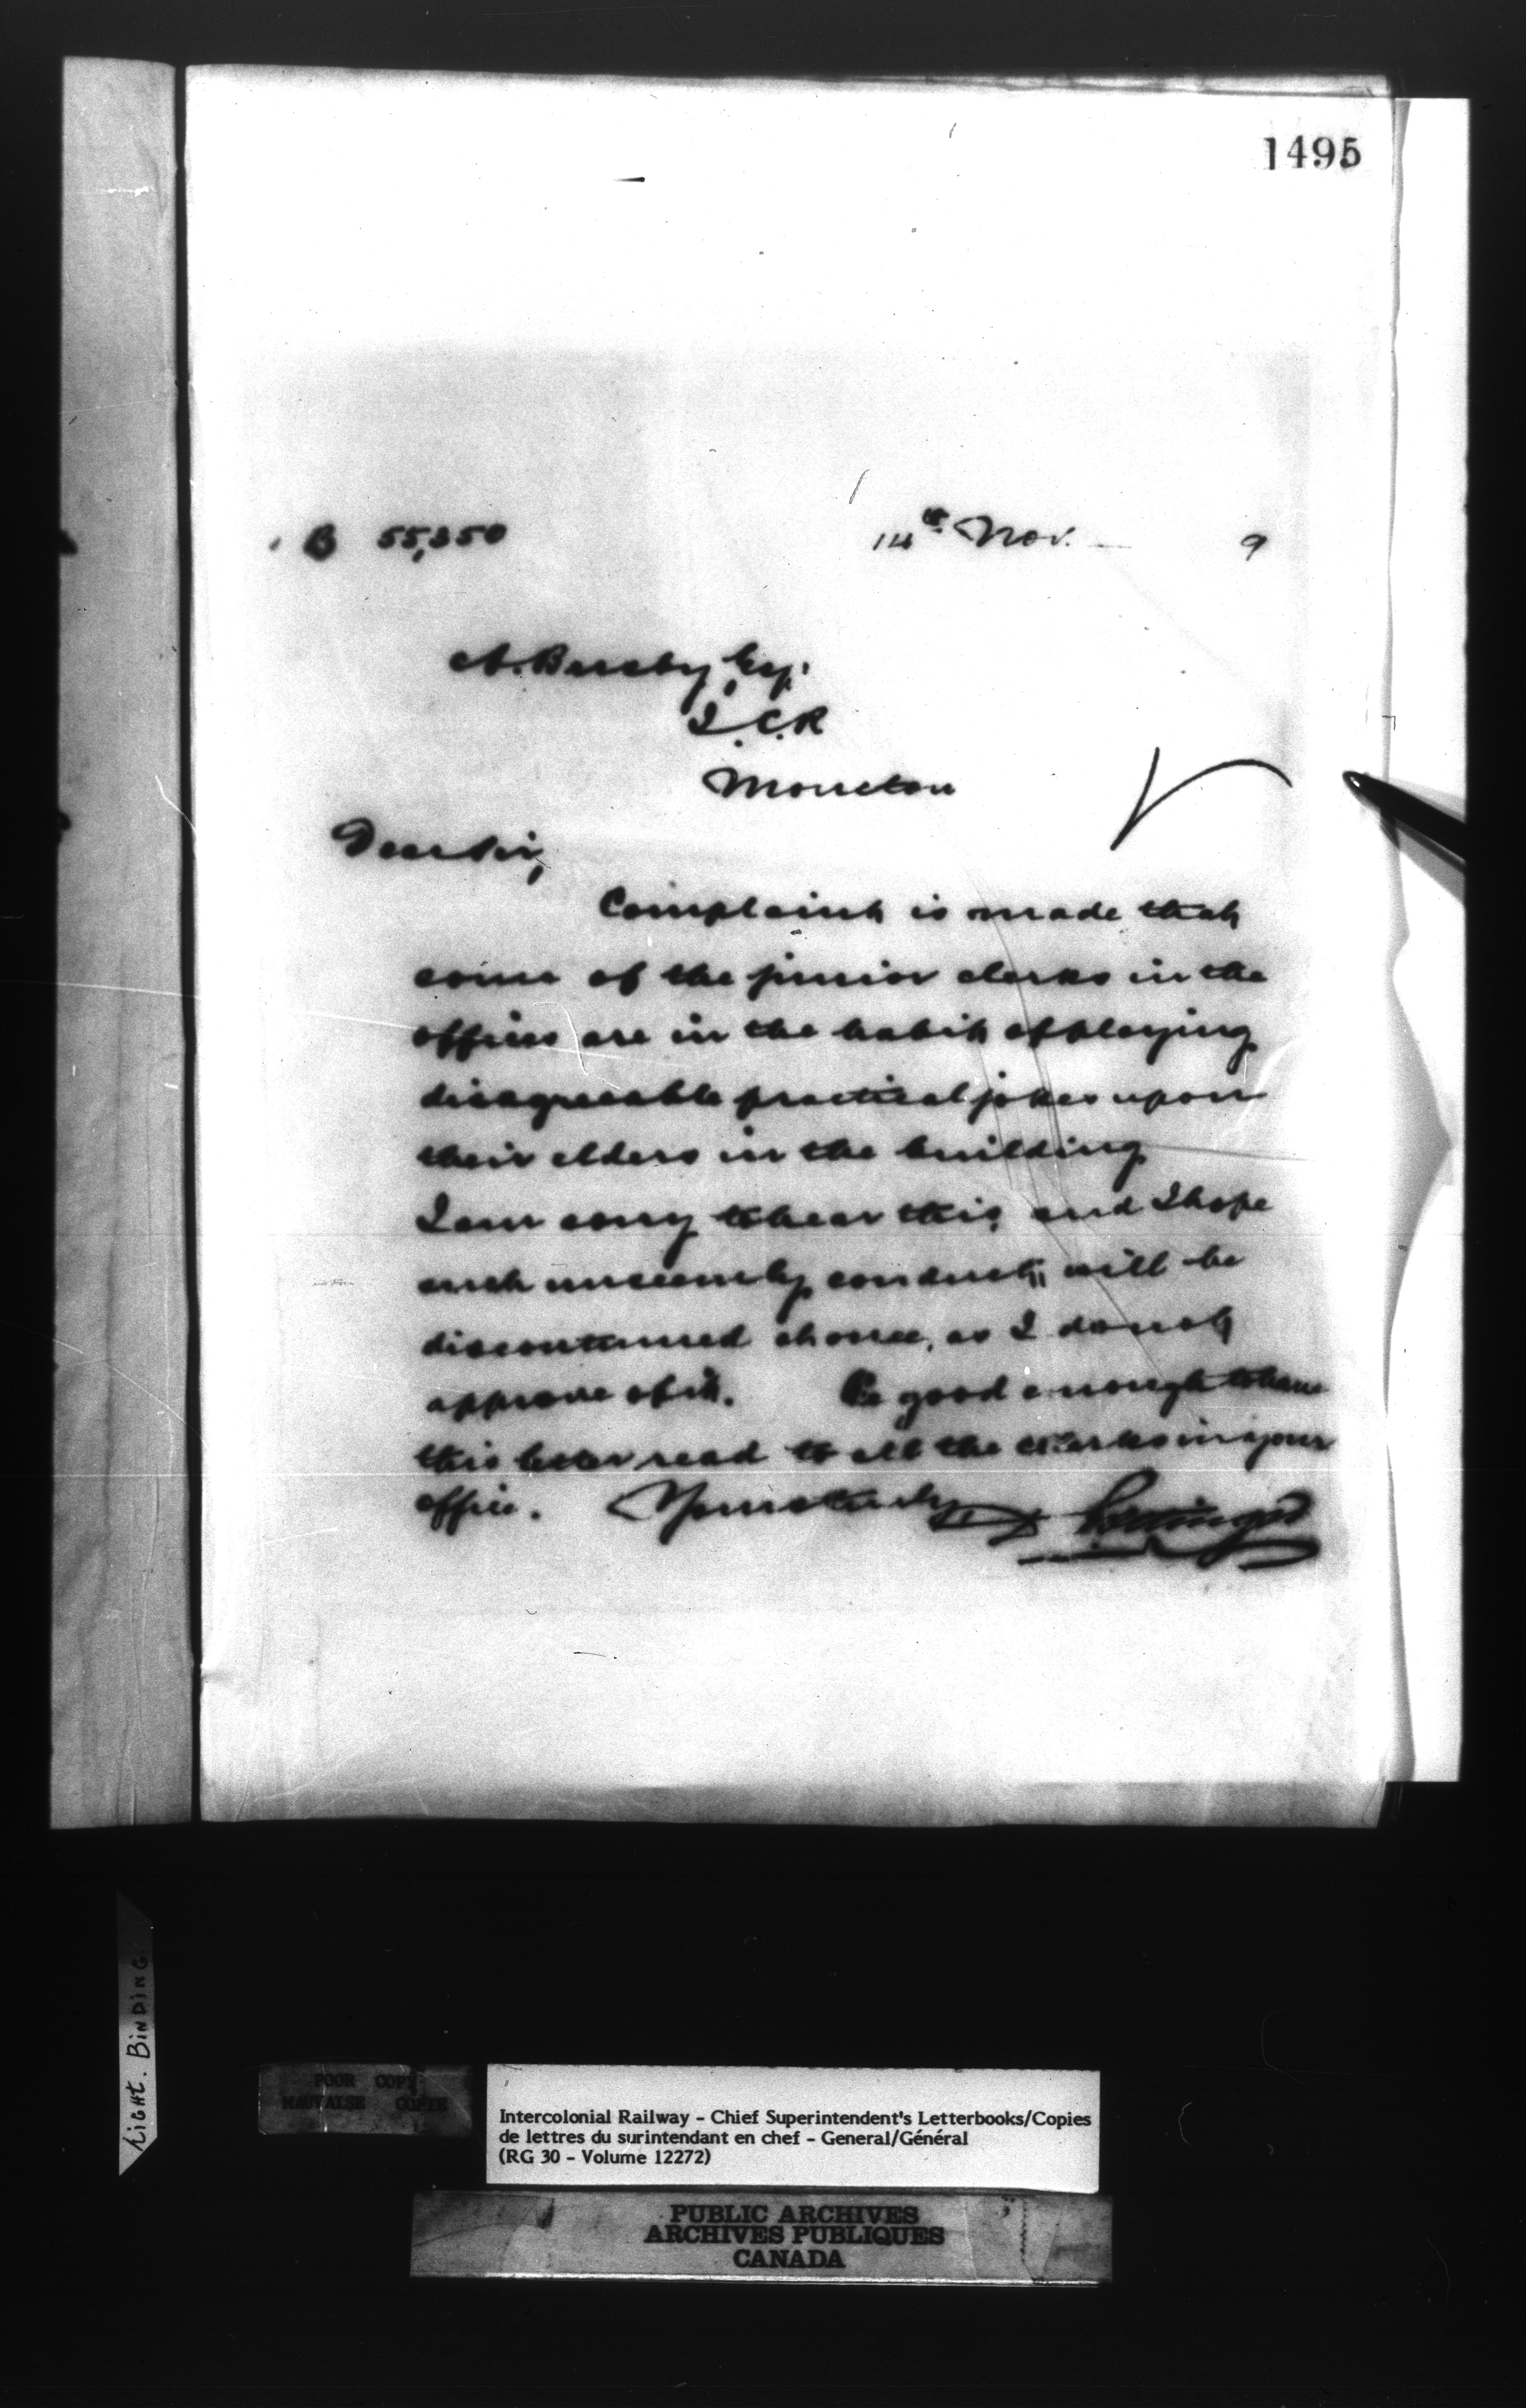 1495
B 55,350 14th Nov. 9
A. Busby, Esq.
I.C.R
Moncton
Dear Sir,
Complaint is made that
some of the junior clerks in the
offices are in the habit of playing
disagreeable practical jokes upon
their elders in the building
I am sorry to hear this, and I hope
such unseemly conduct will be
discontinued at once, as I do not
approve of it. Be good enough to have
this letter read to all the clerks in your
office. Yours truly D Pottinger
LIGHT. BINDING
POOR COPY
MAUVAISE COPIE
Intercolonial Railway - Chief Superintendent's Letterbooks/Copies
de lettres du surintendant en chef - General/Général
(RG 30 - Volume 12272)
PUBLIC ARCHIVES
ARCHIVES PUBLIQUES
CANADA